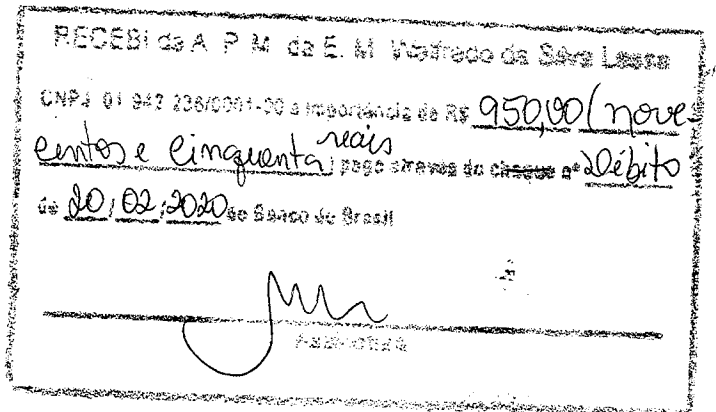 RECEBI da A. P. M. da E. M. Wolfredo da Silva Lessa
CNPJ 01 942 236/0001-00 a importância de R$ 950,00 (nove-
centos e cinquenta reais) pago através do cheque nº Débito
de 20/02/2020 do Banco do Brasil
Assinatura